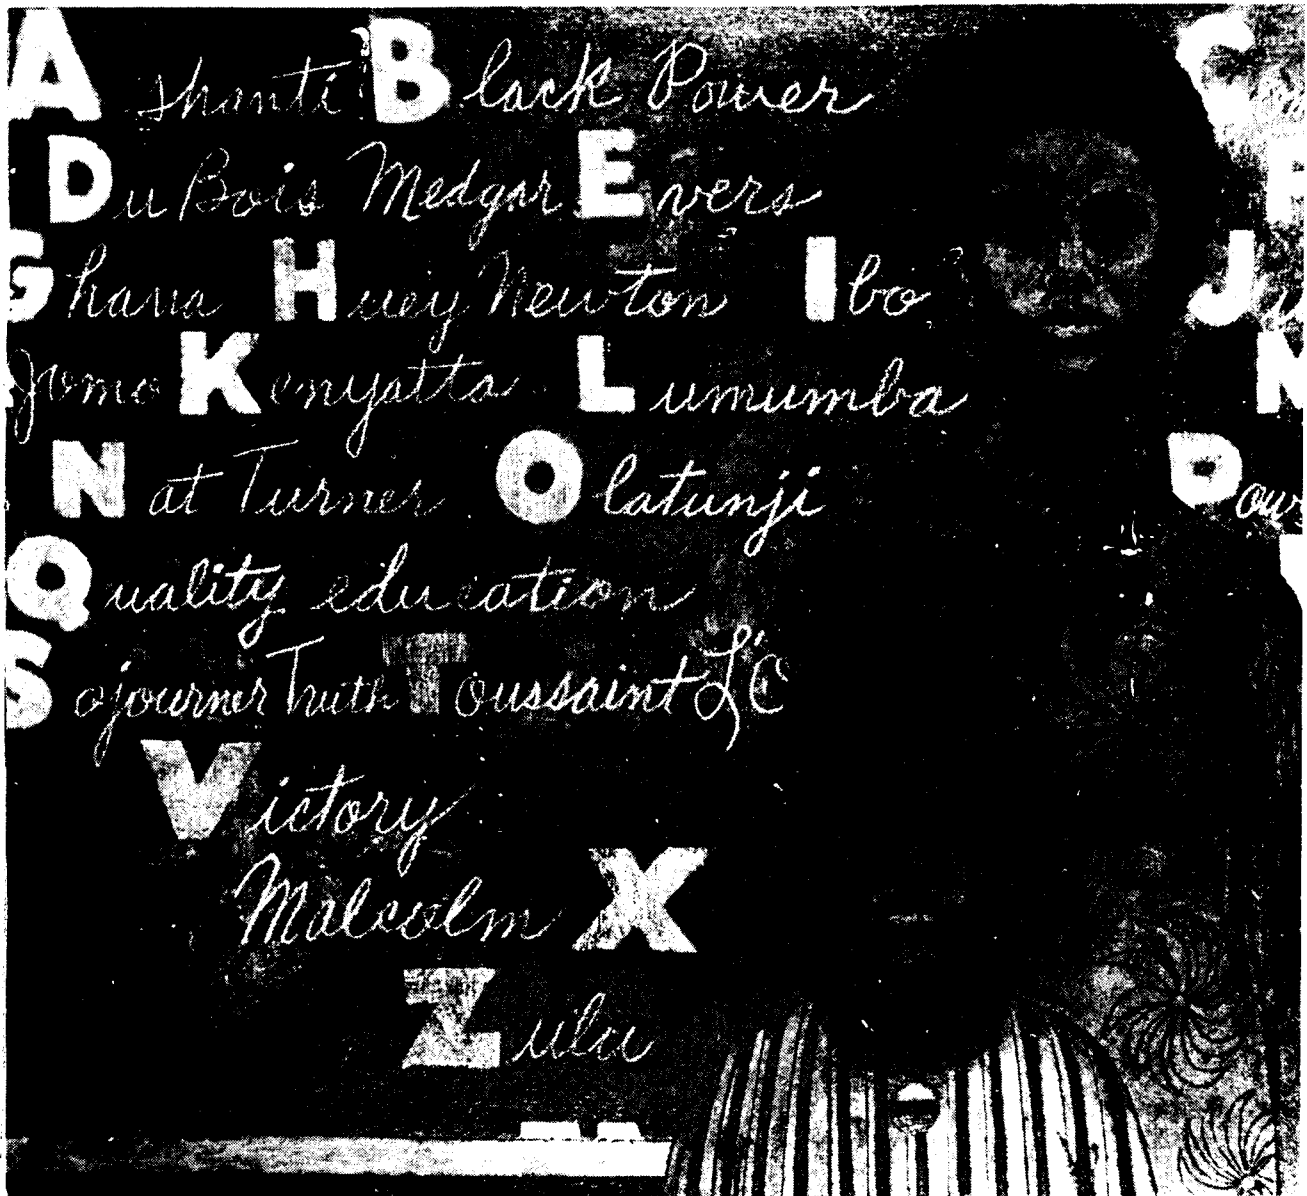 Ashanti Black Power C
Du Bois Medgar Evers F
Ghana Huey Newton Ibo Ju
Jomo Kenyatta Lumumba
Nat Turner Olatunji Pow
Quality education
Sojourner Truth Toussaint L'O
Victory
Malcolm X
Zulu